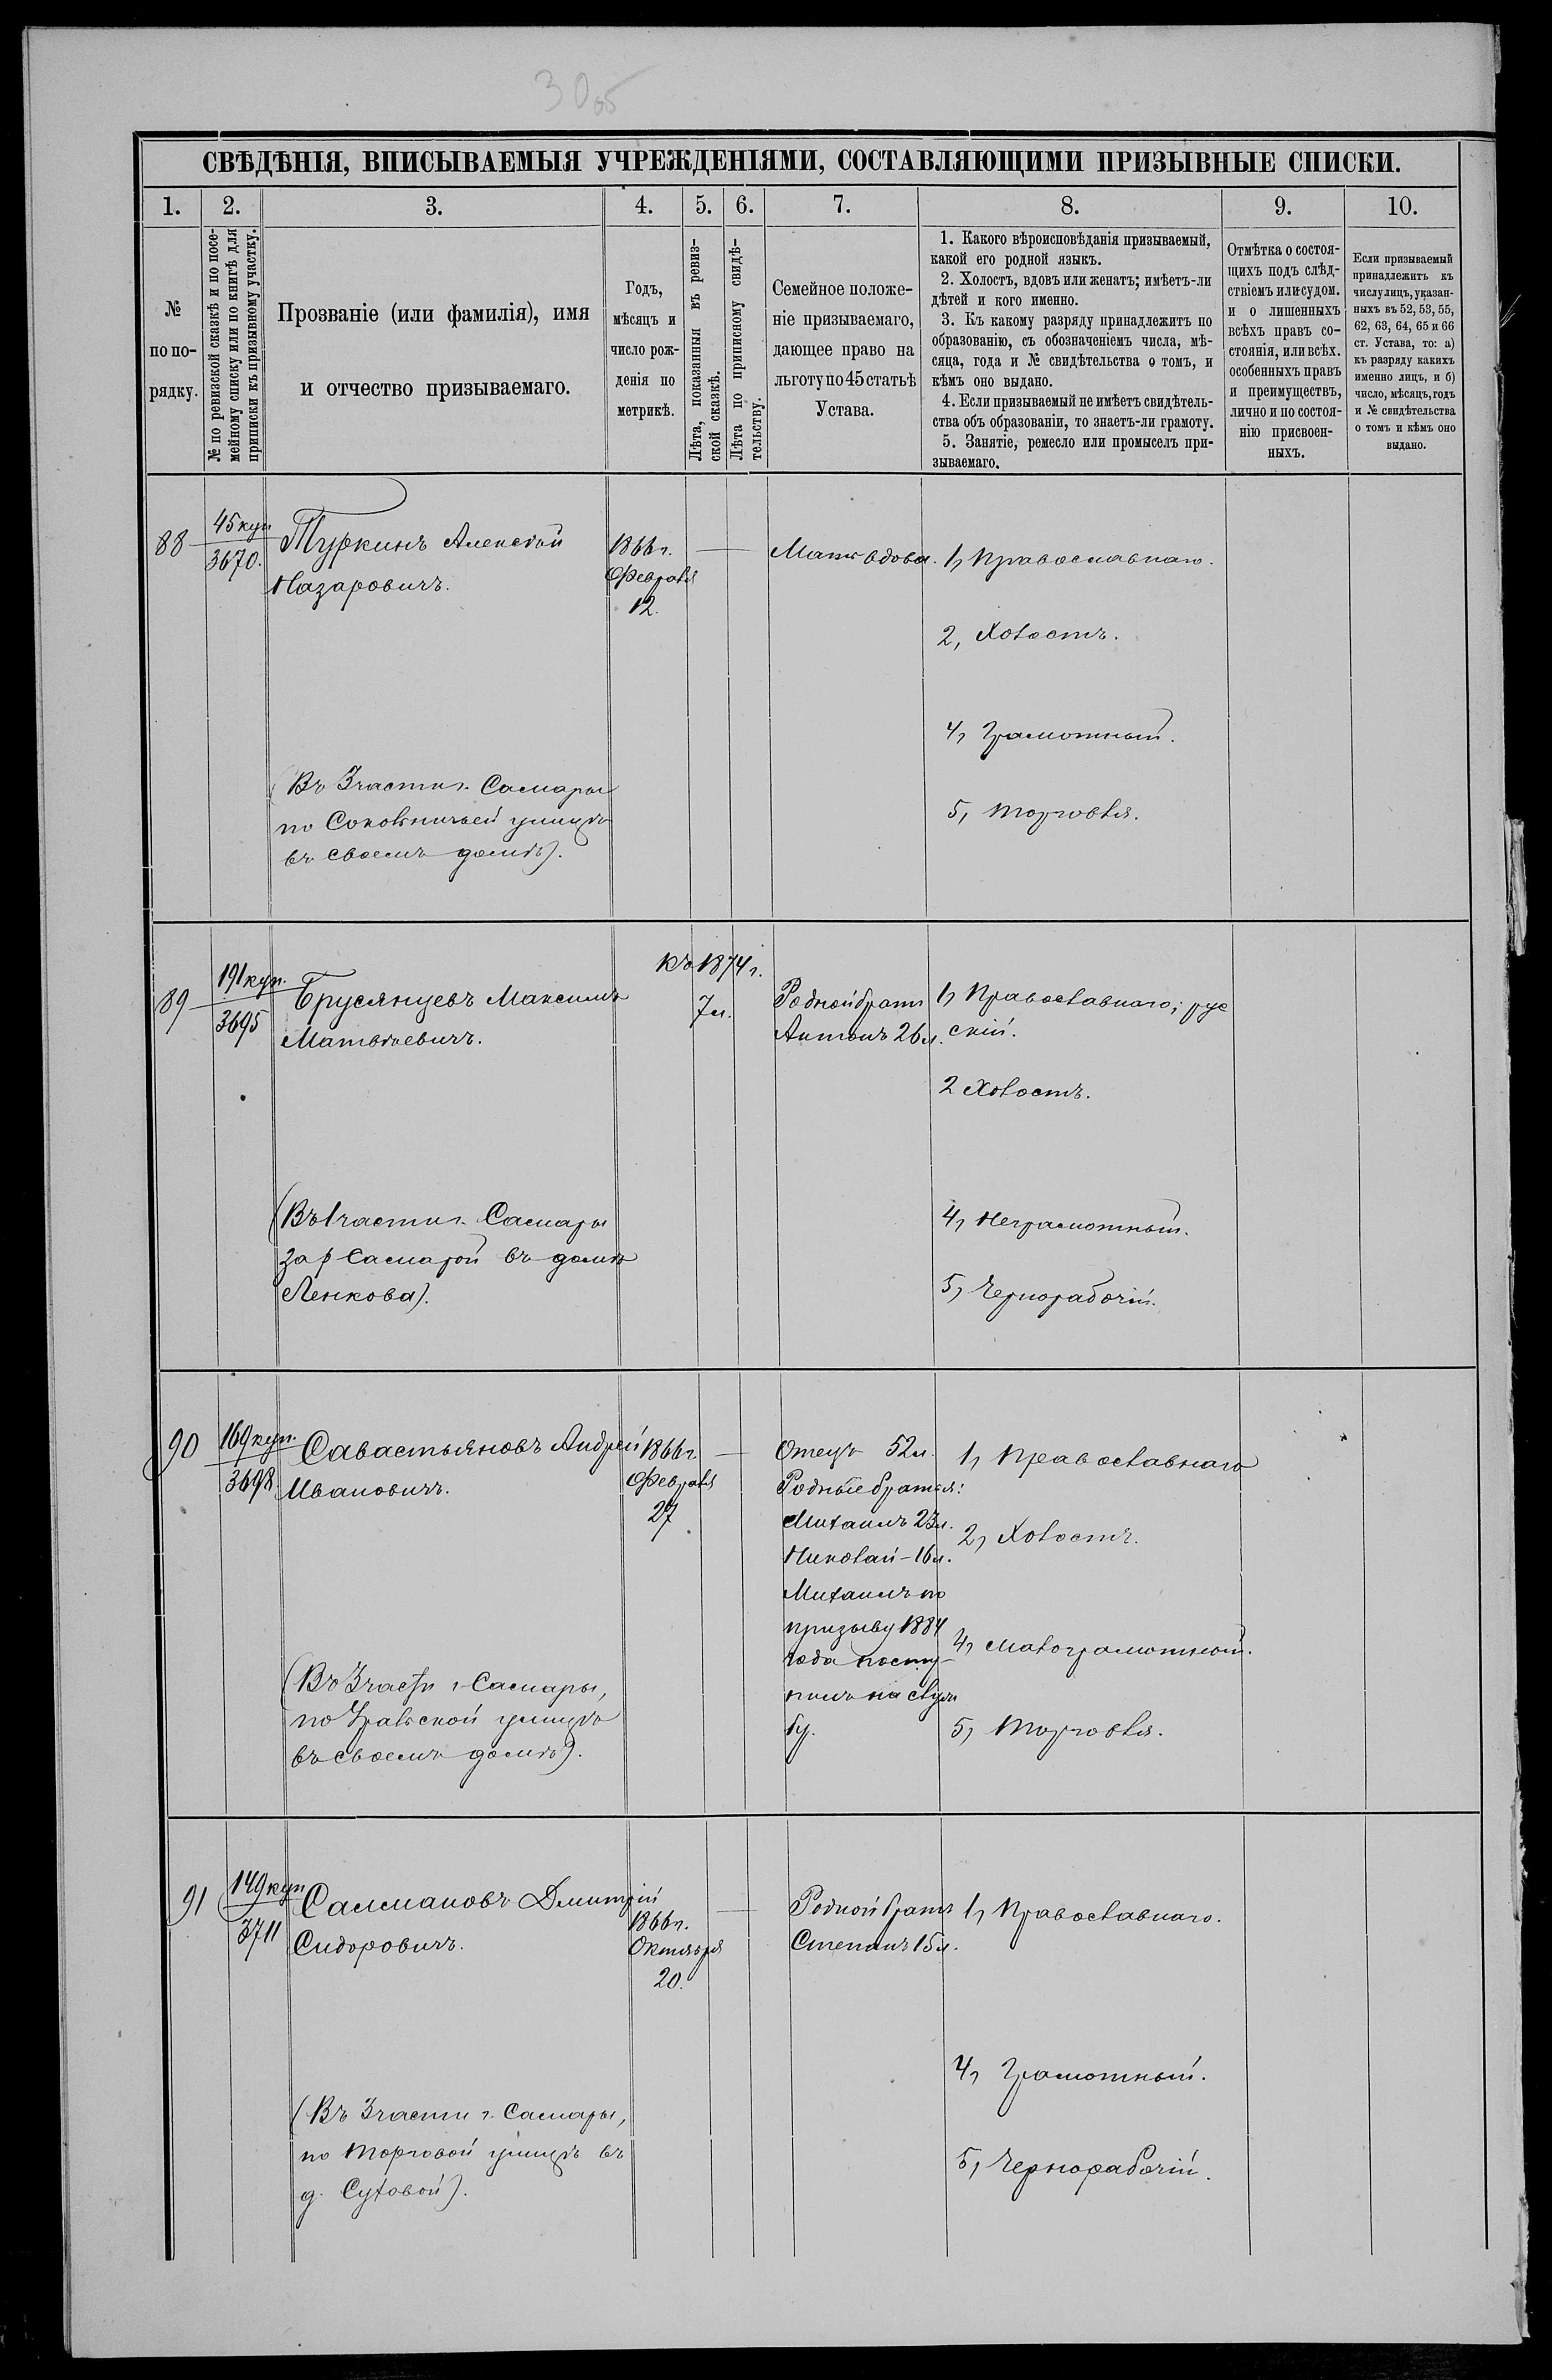 30об
СВѢДѢНІЯ, ВПИСЫВАЕМЫЯ УЧРЕЖДЕНІЯМИ, СОСТАВЛЯЮЩИМИ ПРИЗЫВНЫЕ СПИСКИ.
1.
2.
3.
4.
5.
6.
7.
8.
9.
10.
№
по по-
рядку.
№ по ревизской сказкѣ и по посе-
мейному списку или по книгѣ для
приписки къ призывному участку.
Прозваніе (или фамилія), имя
и отчество призываемаго.
Годъ,
мѣсяцъ и
число рож-
денія по
метрикѣ.
Лѣта, показанныя въ ревиз-
ской сказкѣ.
Лѣта по приписному свидѣ-
тельству.
Семейное положе-
ніе призываемаго,
дающее право на
льготу по 45 статьѣ
Устава.
1. Какого вѣроисповѣданія призываемый,
какой его родной языкъ.
2. Холостъ, вдовъ или женатъ; имѣетъ-ли
дѣтей и кого именно.
3. Къ какому разряду принадлежитъ по
образованію, съ обозначеніемъ числа, мѣ-
сяца, года и № свидѣтельства о томъ, и
кѣмъ оно выдано.
4. Если призываемый не имѣетъ свидѣтель-
ства объ образованіи, то знаетъ-ли грамоту.
5. Занятіе, ремесло или промыселъ при-
зываемаго.
Отмѣтка о состоя-
щихъ подъ слѣд-
ствіемъ или судом.
и о лишенныхъ
всѣхъ правъ со-
стоянія, или всѣх.
особенныхъ правъ
и преимуществъ,
лично и по состоя-
нію присвоен-
ныхъ.
Если призываемый
принадлежитъ къ
числу лицъ, указан-
ныхъ въ 52, 53, 55,
62, 63, 64, 65 и 66
ст. Устава, то: а)
къ разряду какихъ
именно лицъ, и б)
число, мѣсяцъ, годъ
и № свидѣтельства
о томъ и кѣмъ оно
выдано.
88
45 куп
3670.
Туркинъ Алексѣй
Назаровичъ.
(Въ 3 части г. Самары
по Соколничьей улицѣ
въ своемъ домѣ).
1866 г.
Февраля
12.
Мать вдова.
1, Православнаго.
2, Холостъ.
4, Грамотный.
5, Торговля.
89
191 куп.
3695
Брусянцевъ Максимъ
Матвѣевичъ.
(Въ 1 части г. Самары
за р Самарой въ домѣ
Ленкова).
Къ 1874 г.
7 л.
Родной братъ
Антонъ 26 л.
1, Православнаго; рус
скій.
2 Холостъ.
4, Неграмотный.
5, Чернорабочій.
90
169 куп.
3698
Савастьяновъ Андрей
Ивановичъ.
(Въ 3 части г. Самары,
по Уральской улицѣ
въ своемъ домѣ).
1866 г.
Февраля
27
Отецъ 52 л.
Родные братья:
Михаилъ 23 л.
Николай - 16 л.
Михаилъ по
призыву 1884
года посту-
пилъ на служ
бу.
1, Православнаго
2, Холостъ.
4, Малограмотный.
5, Торговля.
91
149 куп
3711
Салмановъ Дмитрій
Сидоровичъ.
(Въ 3 части г. Самары,
по Торговой улицѣ въ
д. Суховой).
1866 г.
Октября
20.
Родной братъ
Степанъ 15 л.
1, Православнаго.
4, Грамотный.
5, Чернорабочій.